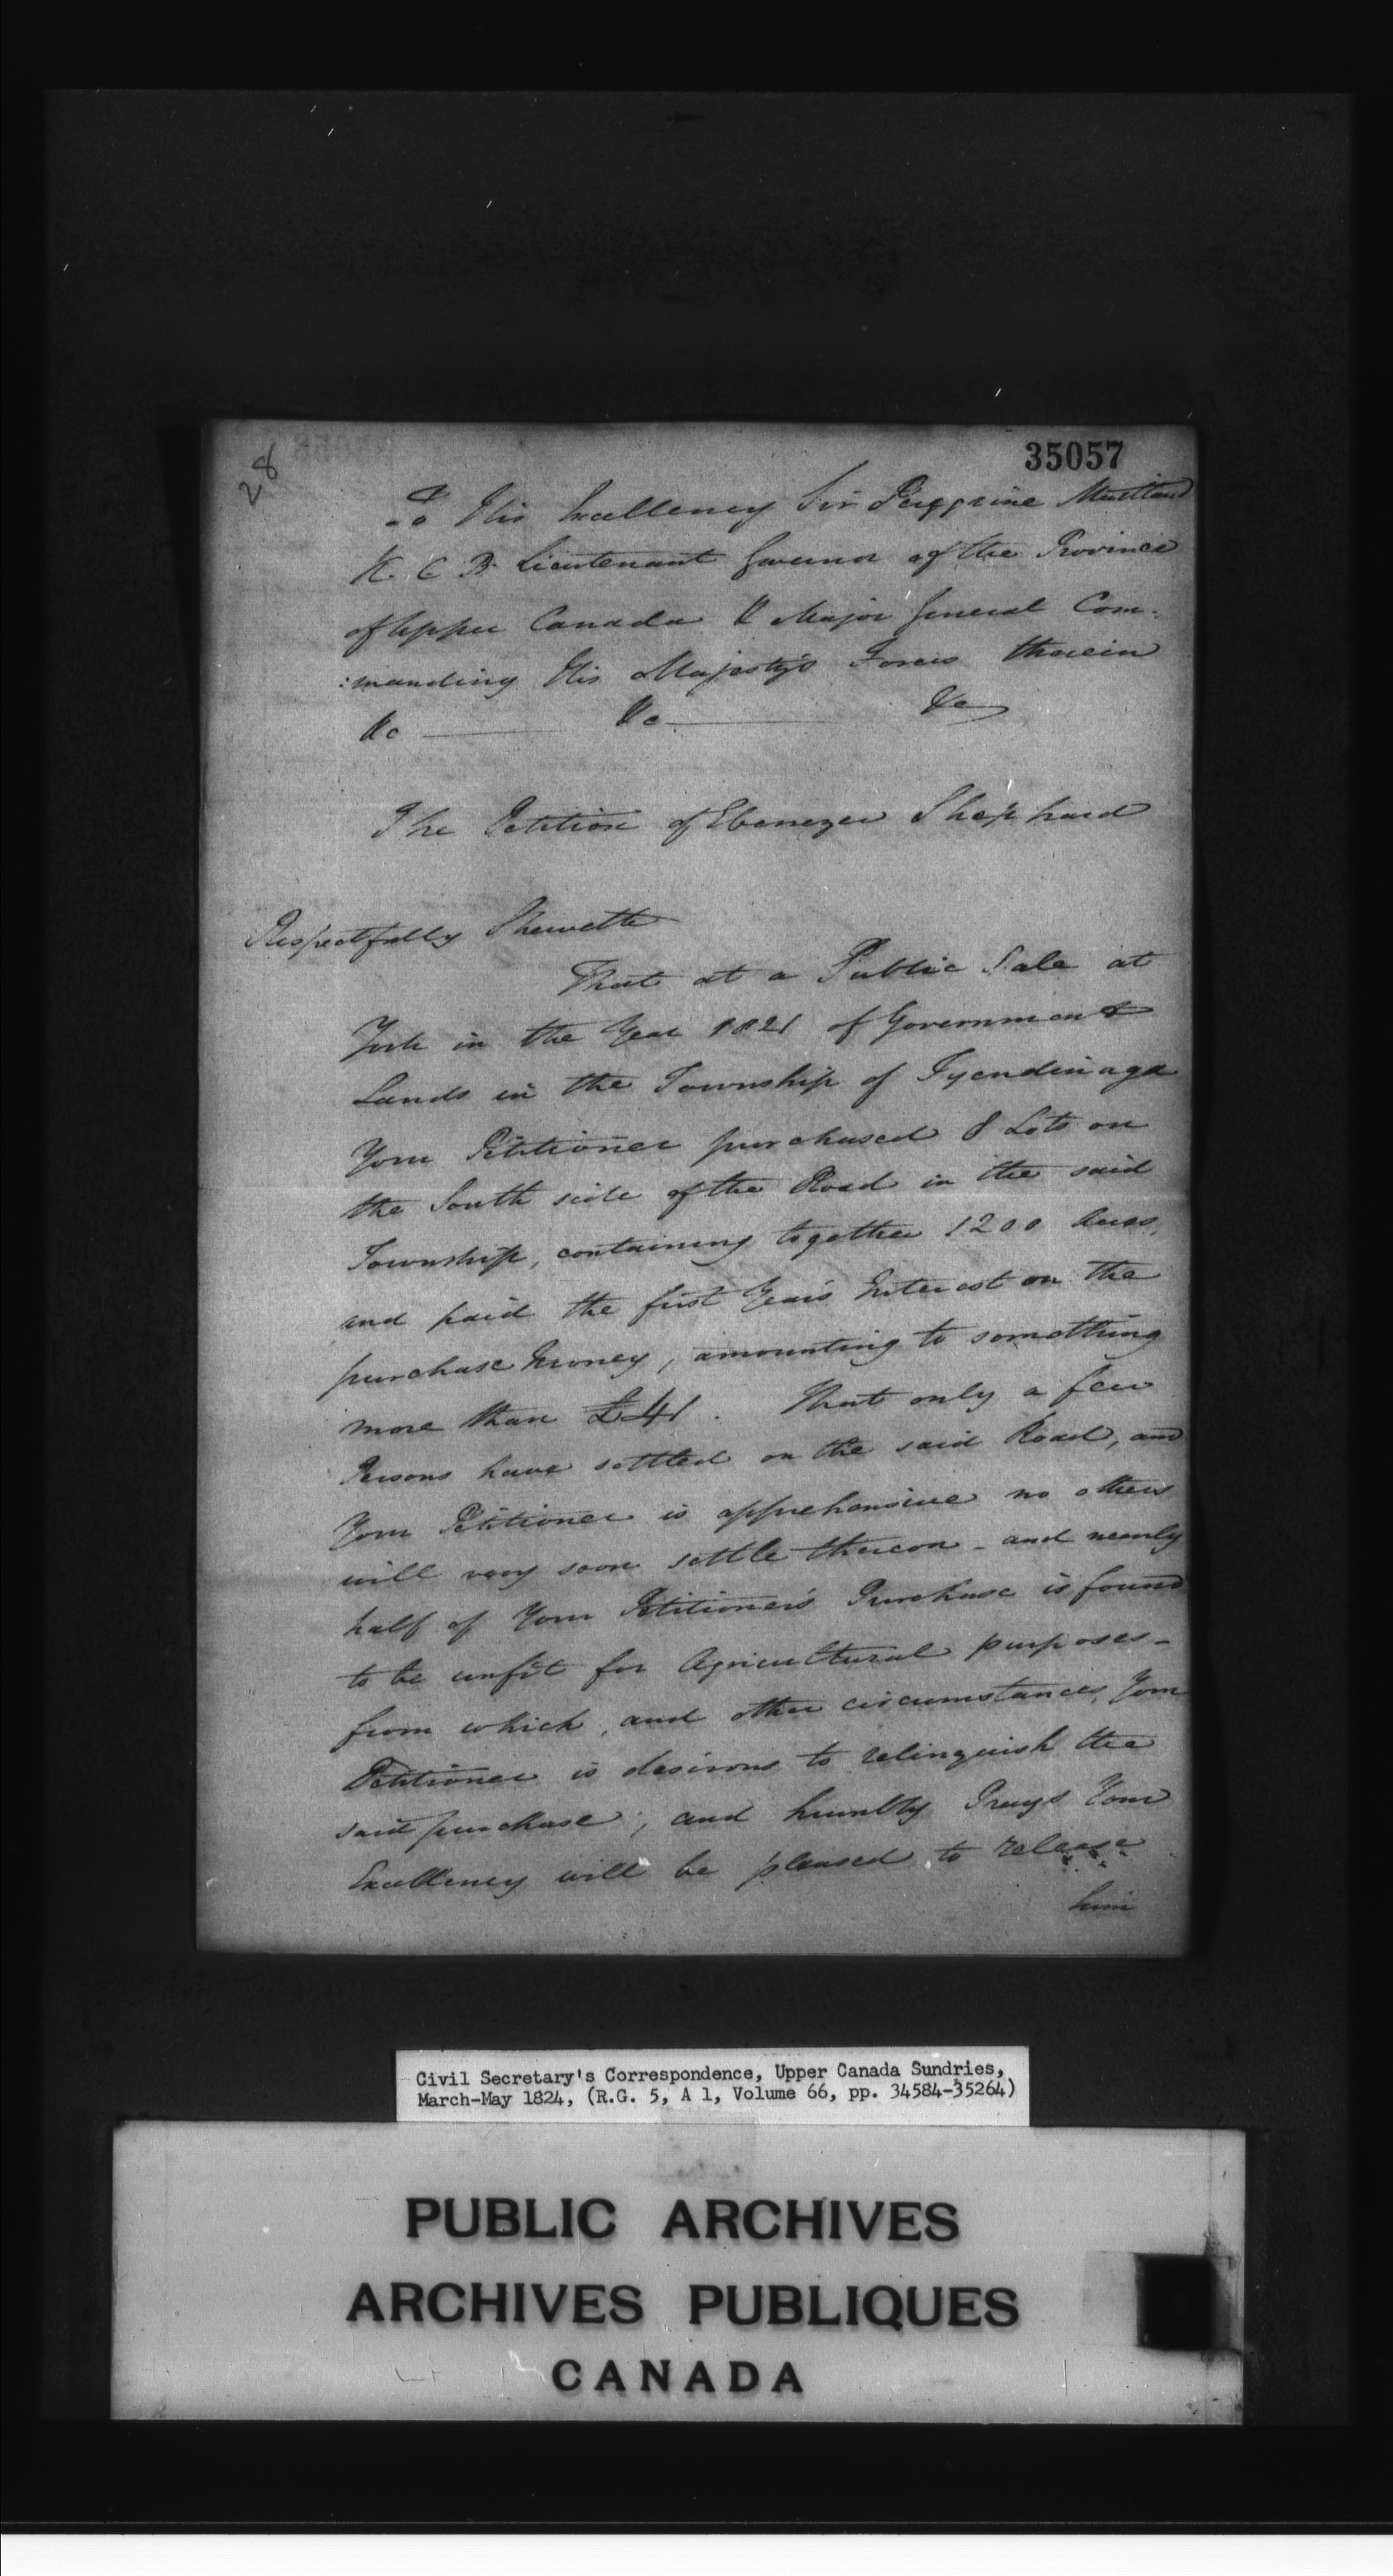 28
35057
To His Excellency Sir Peregrine Maitland
K. C. B. Lieutenant Governor of the Province
of Upper Canada & Major General Com-
:manding His Majesty's Forces therein
&c &c &c
The Petition of Ebenezer Shephard
Respectfully Sheweth
That at a Public Sale at
York in the Year 1821 of Government
Lands in the Township of Tyendinaga
Your Petitioner purchased 8 Lots on
the South side of the Road in the said
Township, containing together 1200 Acres,
and paid the first Year's Interest on the
purchase Money, amounting to something
more than £41. That only a few
Persons have settled on the said Road, and
Your Petitioner is apprehensive no others
will very soon settle thereon - and nearly
half of Your Petitioner's Purchase is found
to be unfit for Agricultural purposes -
from which, and other circumstances, Your
Petitioner is desirous to relinquish the
said purchase; and humbly Prays Your
Excellency will be pleased to release
him
Civil Secretary's Correspondence, Upper Canada Sundries,
March-May 1824, (R.G. 5, A 1, Volume 66, pp. 34584-35264)
PUBLIC ARCHIVES
ARCHIVES PUBLIQUES
CANADA